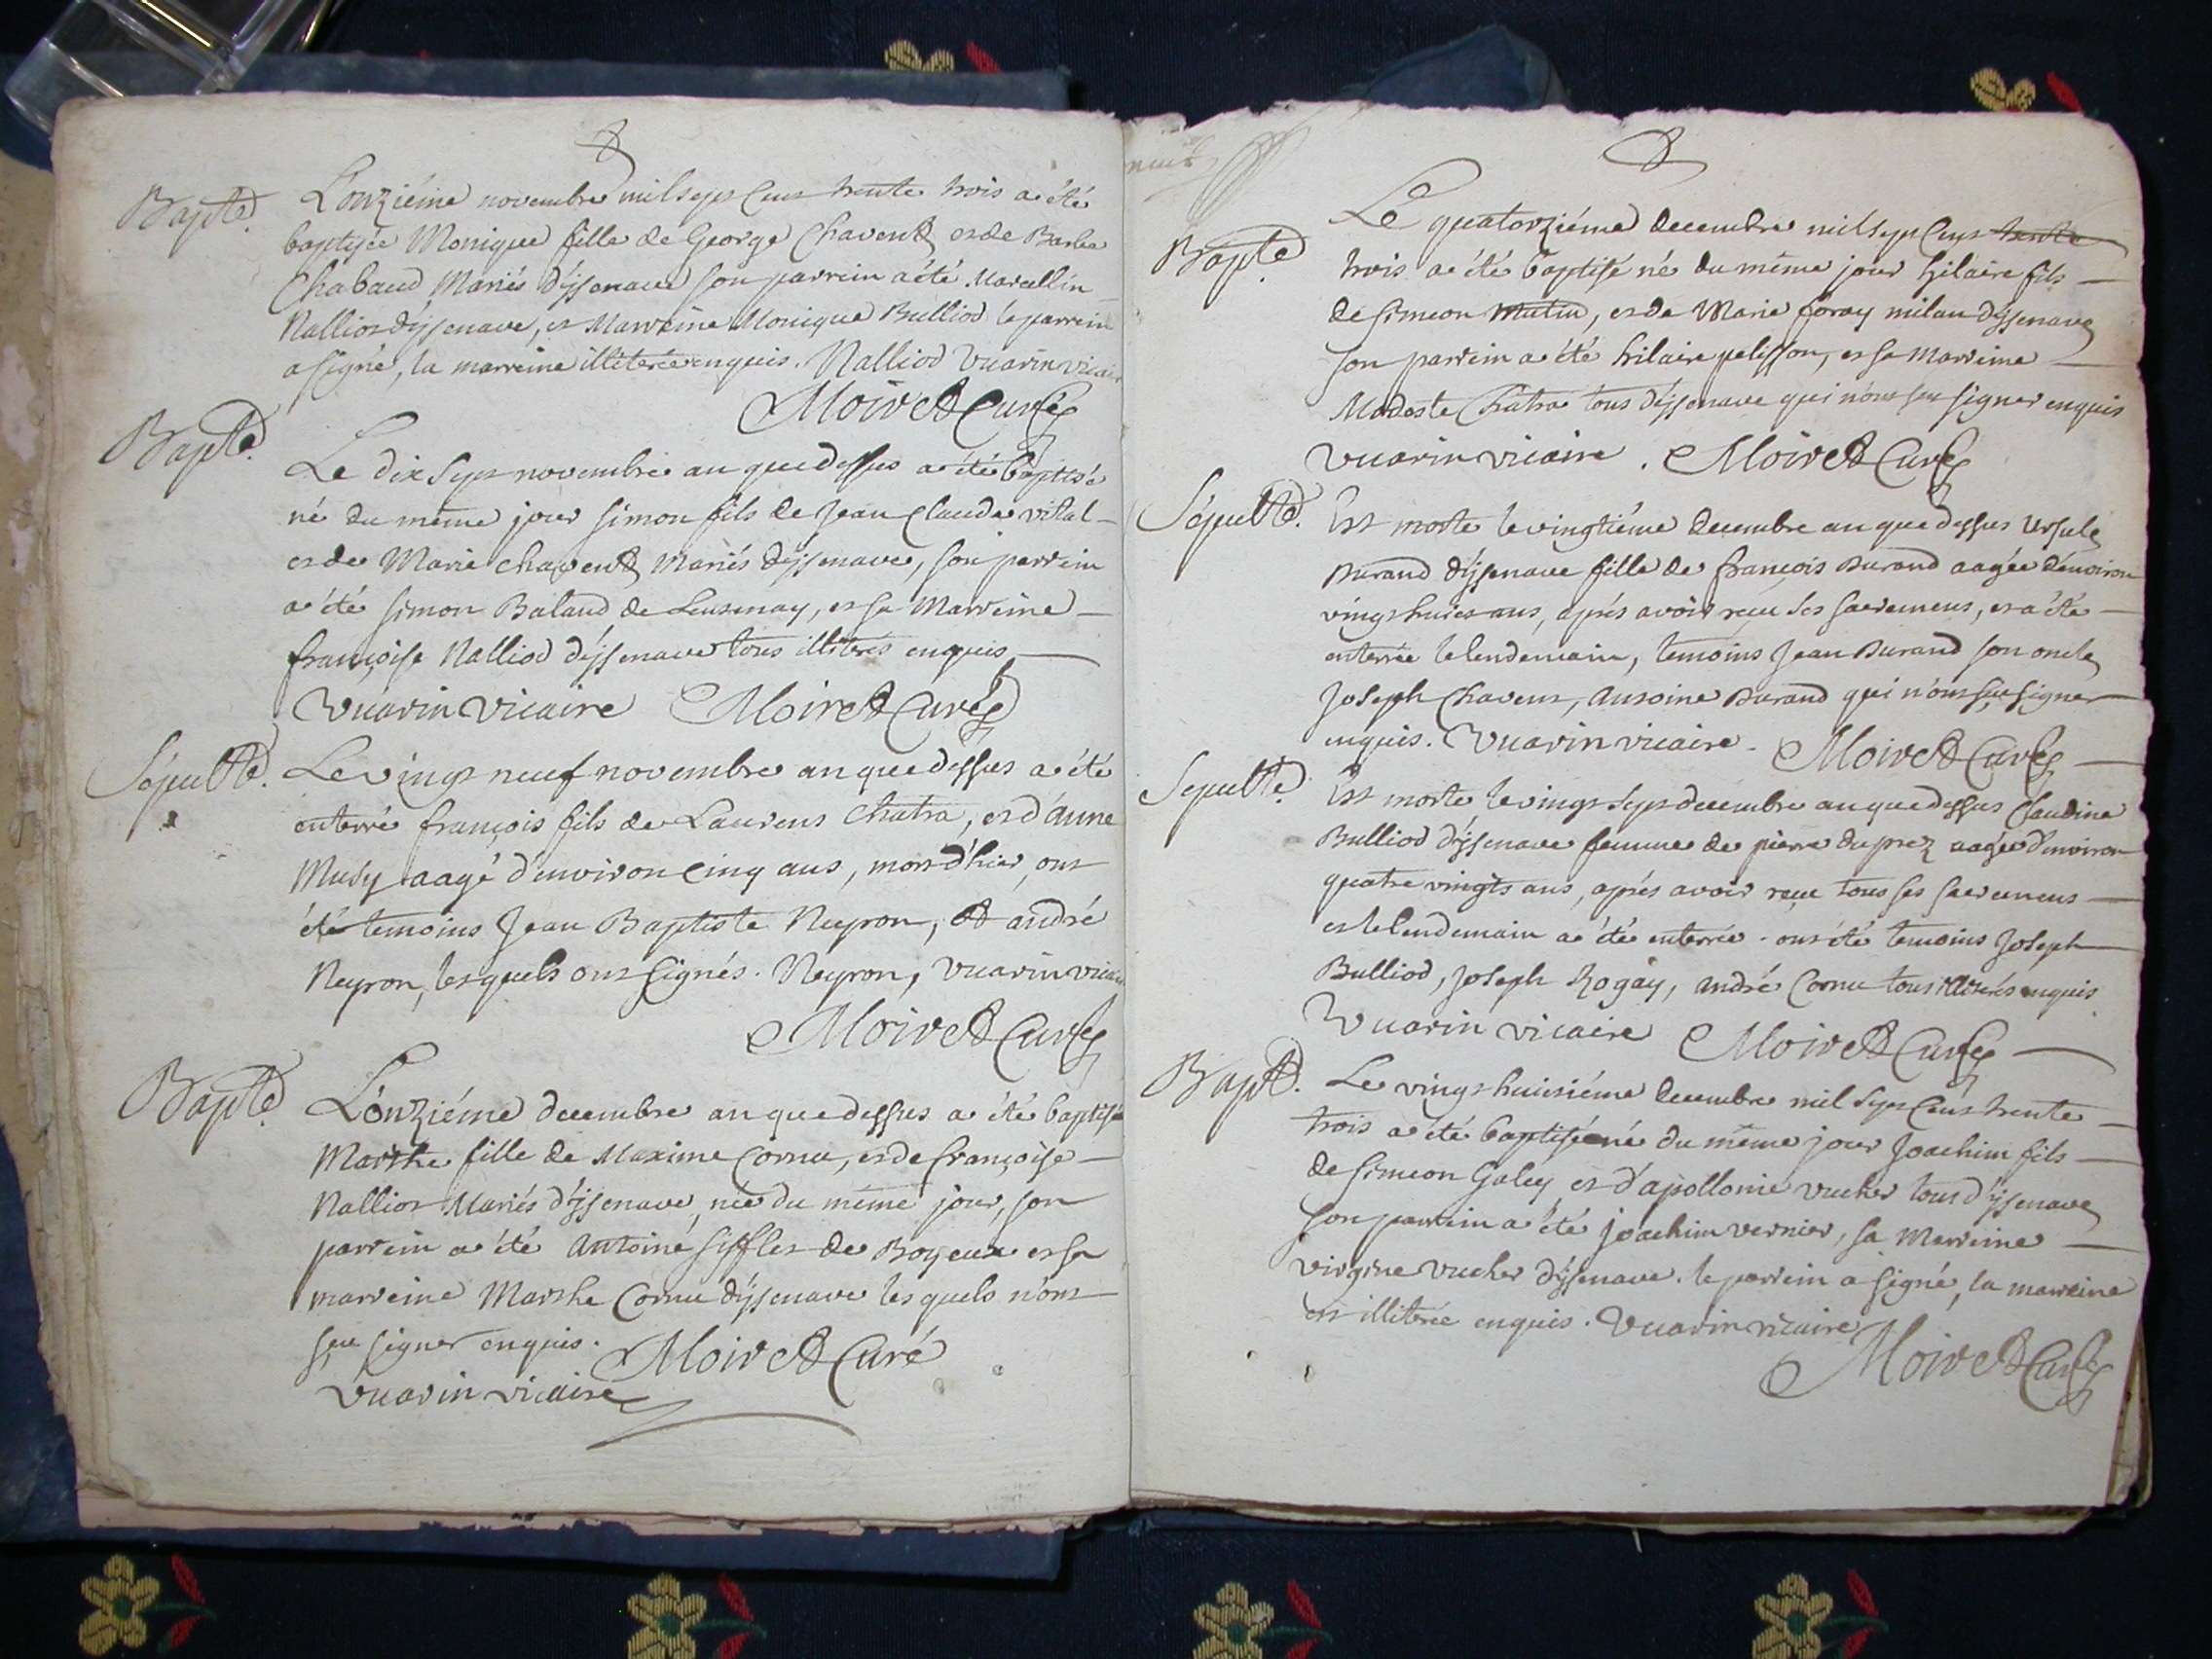 Bapte.
L'onziéme novembre mil sept cent trente trois a été
baptisée Monique fille de George Chavent et de Barbe
Chabaud Mariés d'jsenave son parrein a été Marcellin
Nalliot d'jsenave, et Marreine Monique Bulliod le parrein
a signé, la marreine illiterée enquis. Nalliod Vuarin vicaire
Moiret Curé
Bapte.
Le dix sept novembre an que dessus a été baptisé
né du même jour simon fils de Jean Claude vital
et de Marie Chavent Mariés d'jsenave, son parrein
a été simon Balaud de Leusenay, et sa Marreine
françoise Nalliod d'jsenave tous illiterés enquis
Vuarin Vicaire Moiret Curé
Sépultte.
Le vingt neuf novembre an que dessus a été
enterré françois fils de Laurent Chatra, et d'anne
Musy aagé d'environ cinq ans, mort d'hier, ont
été temoins Jean Baptiste Neyron, et andré
Neyron, lesquels ont signés. Neyron, Vuarin vicaire
Moiret Curé
Bapte.
L'onziéme decembre an que dessus a été baptisée
Marthe fille de Maxime Cornu, et de françoise
Nalliot Mariés d'jsenave, née du même jour, son
parrein a été Antoine sifflet de Boyeux et sa
marreine Marthe Cornu d'jsenave lesquels n'ont
sçu signer enquis. Moiret Curé
Vuarin vicaire
Bapte.
Le quatorziéme decembre mil sept cent trente
trois a été baptisé né du même jour hilaire fils
de simeon Mutin, et de Marie foray milan d'jsenave
son parrein a été hilaire pelisson, et sa Marreine
Modeste Châtra tous d'jsenave qui n'ont sçu signer enquis
Vuarin vicaire. Moiret Curé
Sépultte.
Est morte le vingtiéme decembre an que dessus Ursule
Durand d'jsenave fille de françois Durand aagée d'environ
vingt huict ans, aprés avoir reçu ses sacremens, et a été
enterrée le lendemain, temoins Jean Durand son oncle
Joseph Chavent, Antoine Durand qui n'ont sçu signer
enquis. Vuarin vicaire. Moiret Curé
Sepultte.
Est morte le vingt sept decembre an que dessus Claudine
Bulliod d'jsenave femme de pierre duprez aagée d'environ
quatre vingts ans, aprés avoir reçu tous ses sacremens
et le lendemain a été enterrée. ont été temoins Joseph
Bulliod, Joseph Rogay, André Cornu tous illiterés enquis
Vuarin vicaire Moiret Curé
Bapt.
Le vingt huitiéme decembre mil sept cent trente
trois a été baptisé né du même jour Joachim fils
de simeon Galey et d'apollonie vucher tous d'jsenave
son parrein a été joachim vernier, sa Marreine
virgine vucher d'jsenave. le parrein a signé, la marreine
est illiterée enquis. Vuarin vicaire
Moiret Curé